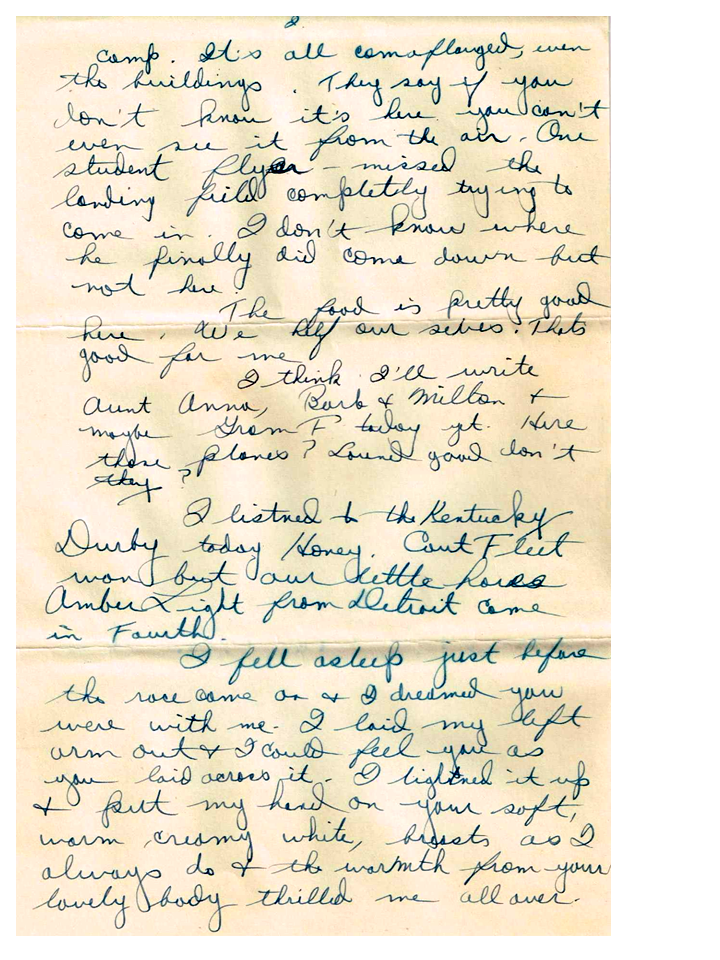 2.
comp. It's all comoflouged, even
the buildings. They say if you
don't know it's here you can't
even see it from the air. One
student flyer - missed the
landing field completely trying to
come in. I don't know where
he finally did come down but
not here.
The food is pretty good
here. We help our selves. Thats
good for me
I think I'll write
Aunt Anna, Barb & Milton &
maybe Gram F today yet. Here
those planes? Sound good don't
they?
I listned to the Kentucky
Durby today Honey. Cout Fleet
won but our little horse
Amber Light from Detroit came
in Fourth.
I fell asleep just before
the race came on & I dreamed you
were with me. I laid my left
arm out & I could feel you as
you laid across it. I tightned it up
& put my hand on your soft,
warm, creamy white, breasts as I
always do & the warmth from your
lovely body thrilled me all over.